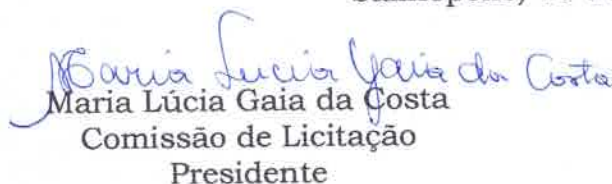 Maria Lucia Gaia da Costa
Maria Lúcia Gaia da Costa
Comissão de Licitação
Presidente